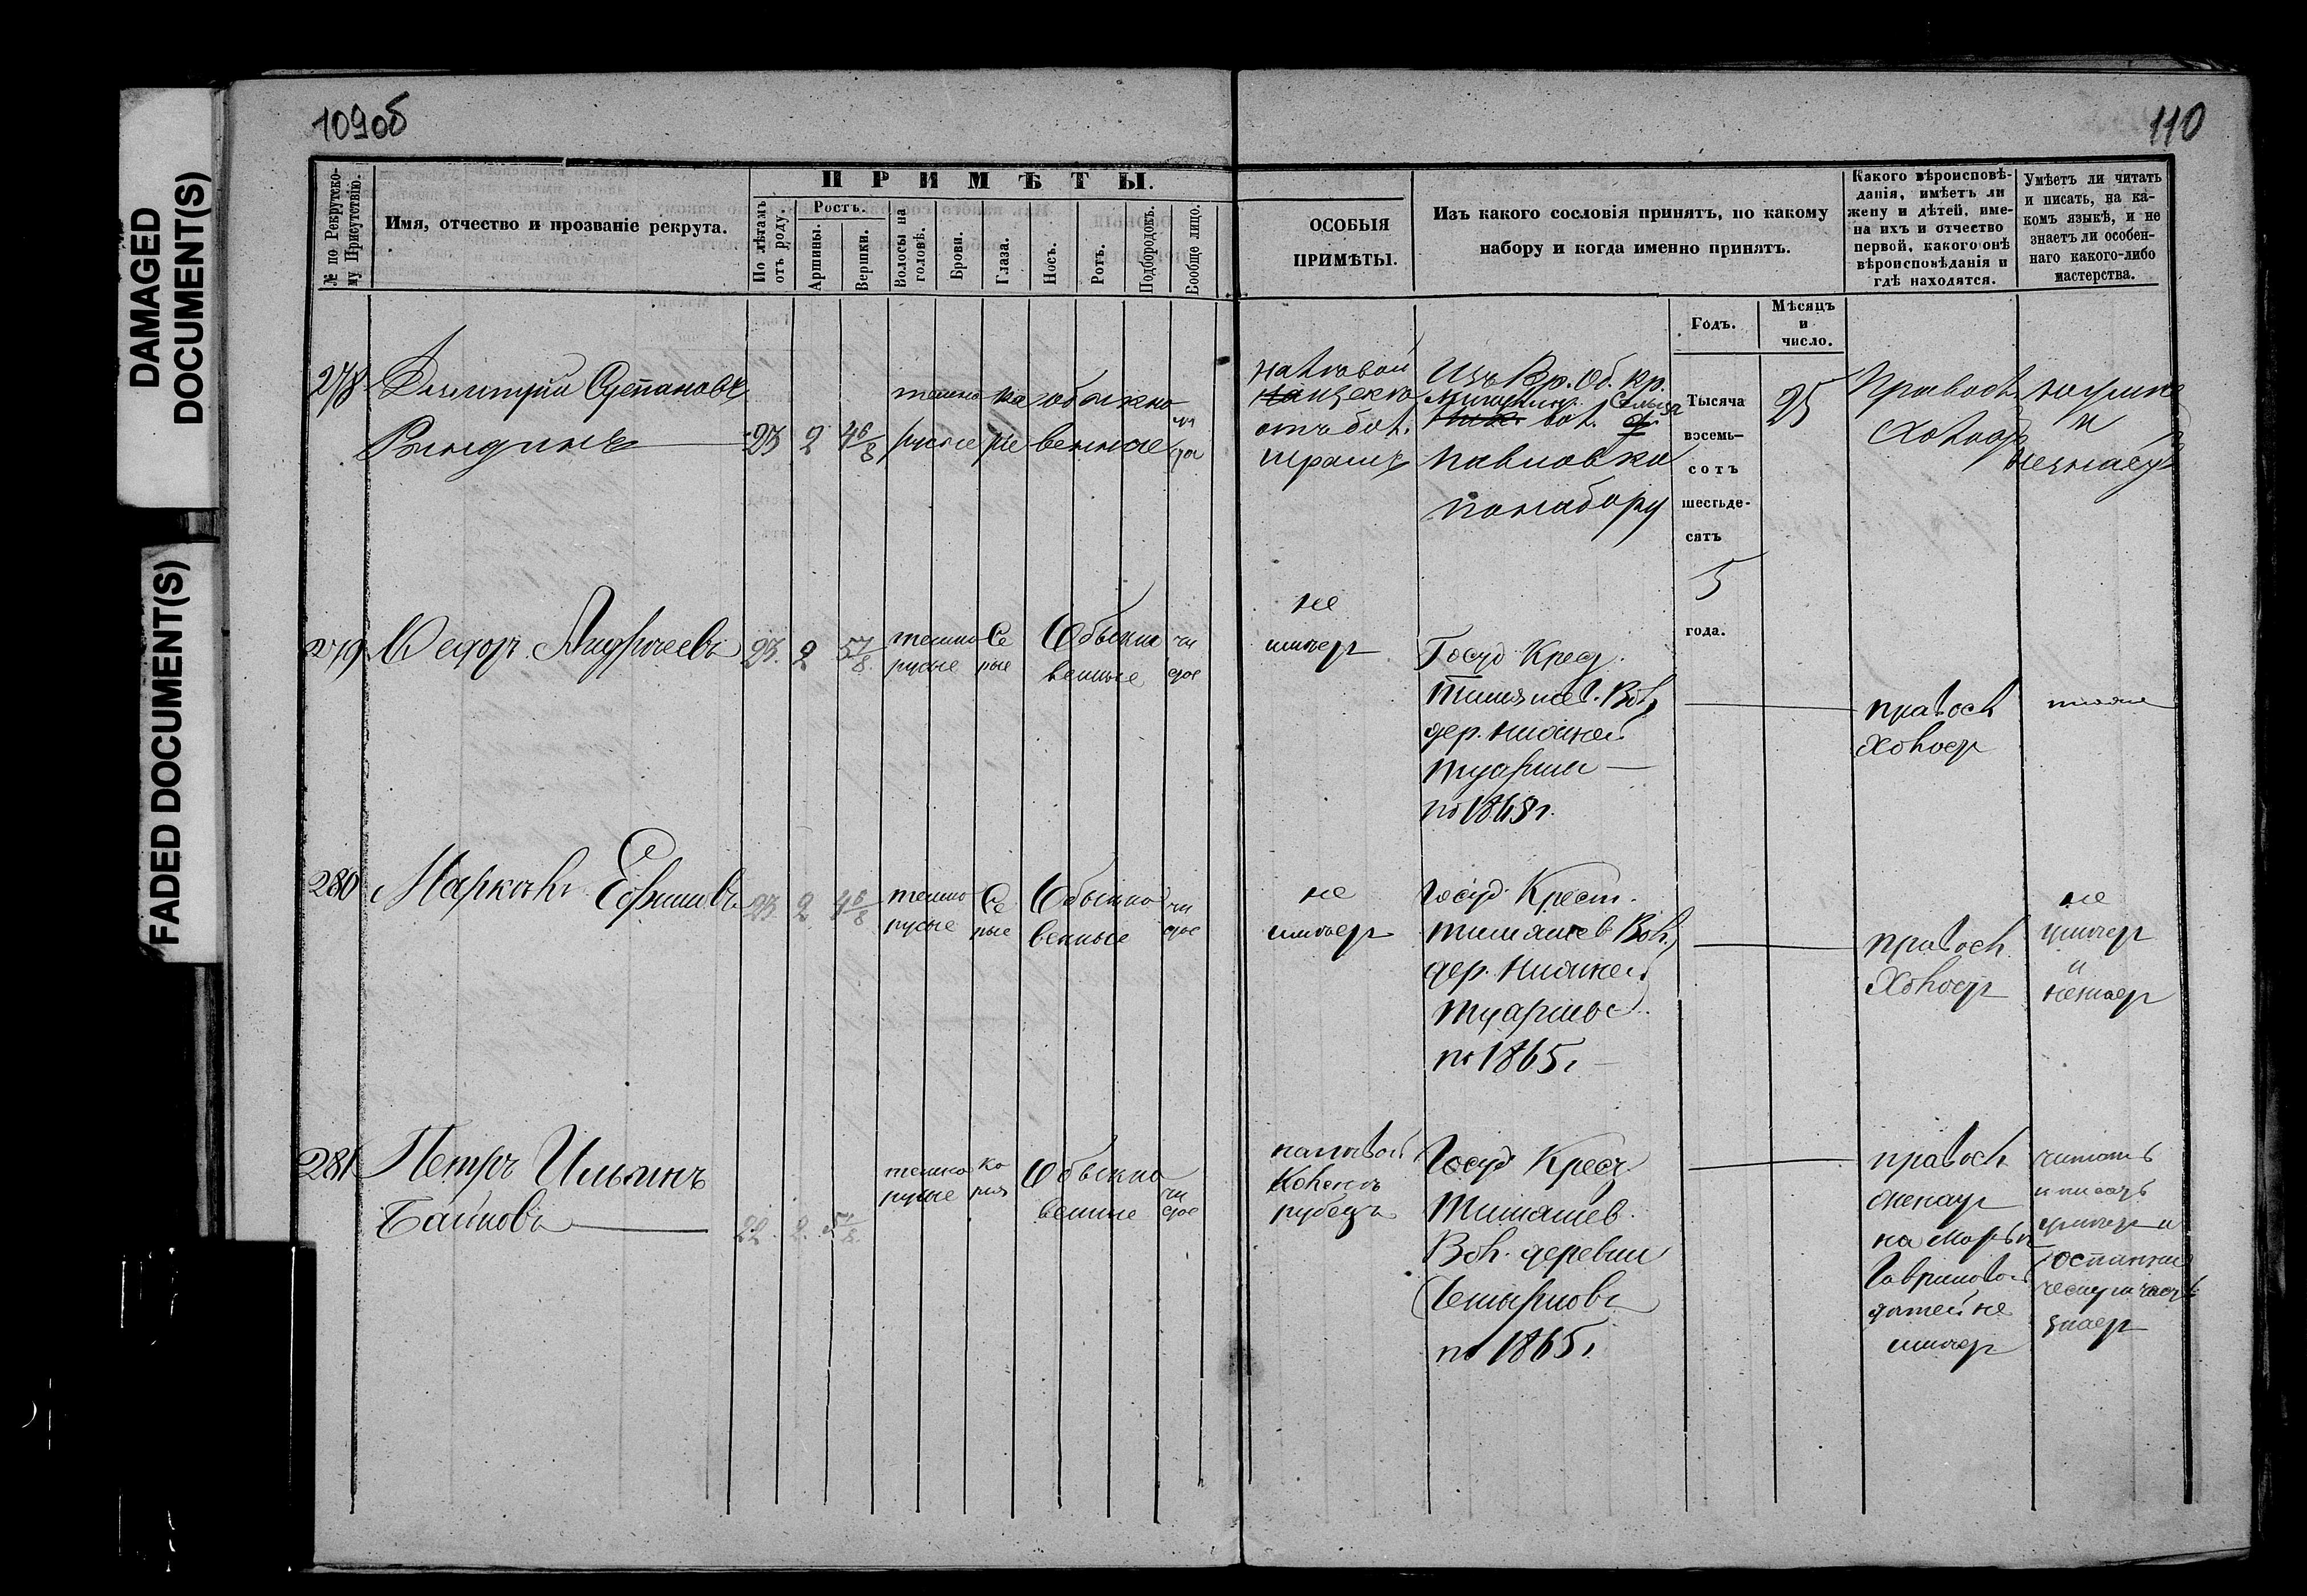 DAMAGED
DOCUMENT(S)
FADED DOCUMENT(S)
109об
110
№ по Рекрутско-
му Присутствію.
Имя, отчество и прозваніе рекрута.
ПРИМѢТЫ.
По лѣтамъ
отъ роду.
Ростъ.
Аршины.
Вершки.
Волосы на
головѣ.
Брови.
Глаза.
Носъ.
Ротъ.
Подбородокъ.
Вообще лицо.
ОСОБЫЯ
ПРИМѢТЫ.
Изъ какого сословія принятъ, по какому
набору и когда именно принятъ.
Годъ.
Мѣсяцъ
и
число.
Какого вѣроисповѣ-
данія, имѣетъ ли
жену и дѣтей, име-
на ихъ и отчество
первой, какого онѣ
вѣроисповѣданія и
гдѣ находятся.
Умѣетъ ли читать
и писать, на ка-
комъ языкѣ, и не
знаетъ ли особен-
наго какого-либо
мастерства.
278 Дмитрій Степановъ
Рындинъ 23 2 4 6/8
темно русые ка ріе обыкно венные чи стое
на лѣвой
щекѣ
отъ бол.
шрамъ
Изъ Вр. Об. Кр.
вол.
Павловки
по набору
Тысяча
восемь-
сотъ
шестьде-
сятъ
5
года.
25
Правосл
холост
и
незнаетъ
279 Федоръ 23. 2 5 1/8.
темно русые Се рые Обыкно венные чи стое
не
имѣетъ
Госуд Крест.
Тимяшев. Вол.
дер. нижней
Туармы
по 1865 г.
правосл
Холост
280 Ефимовъ 23. 2 4 6/8
темно русые Се рые Обыкно венные чи стое
не
имѣетъ
Госуд Крест.
тимяшев Вол.
дер. нижней
Туармы
по 1865 г
правосл.
Холост
не
умѣетъ
и
незнаетъ
281 Петръ Ильинъ
Байковъ 22. 2. 5 1/8.
темно русые ка рія Обыкно венные чи стое
на лѣвой
рубецъ
Госуд Крест.
Тимяшев.
Вол. деревни
по 1865 г
правосл.
женатъ
на Марьѣ
Гавриловой
дѣтей не
имѣетъ
читать
и писать
умѣетъ и
знаетъ